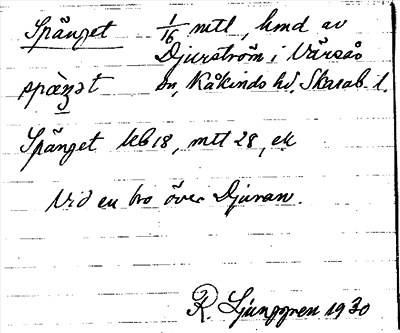 Spånget 1/16 mtl, hmd av
Djurström i Värsås
spàŋət sn, Kåkinds hd. Skarab. l.
Spånget Jeb 18, mtl 28, ek
Vid en bro över Djuran.
R Ljunggren 1930